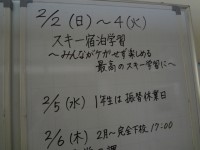 2/2（日）〜4（火）
スキー宿泊学習
〜みんながケガせず楽しめる
最高のスキー学習に〜
2/5（水） 1年生は振替休業日
2/6（木） 2月〜完全下校17:00